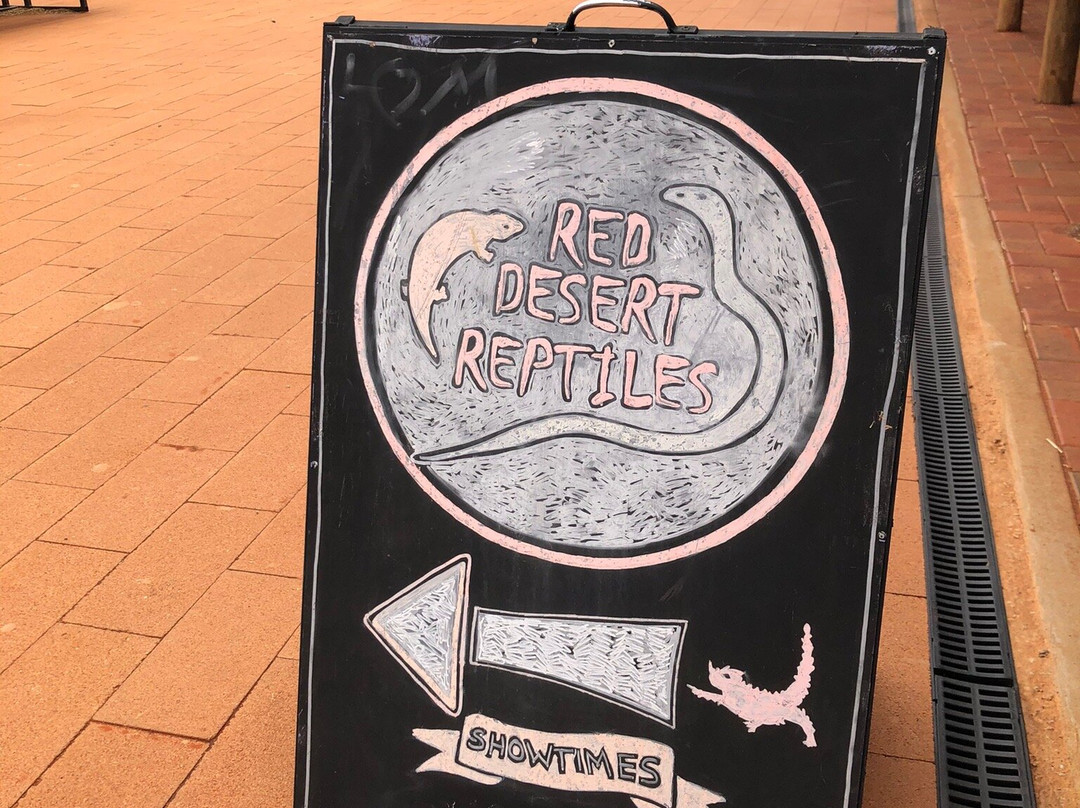 RED
DESERT
REPTILES
SHOWTIMES